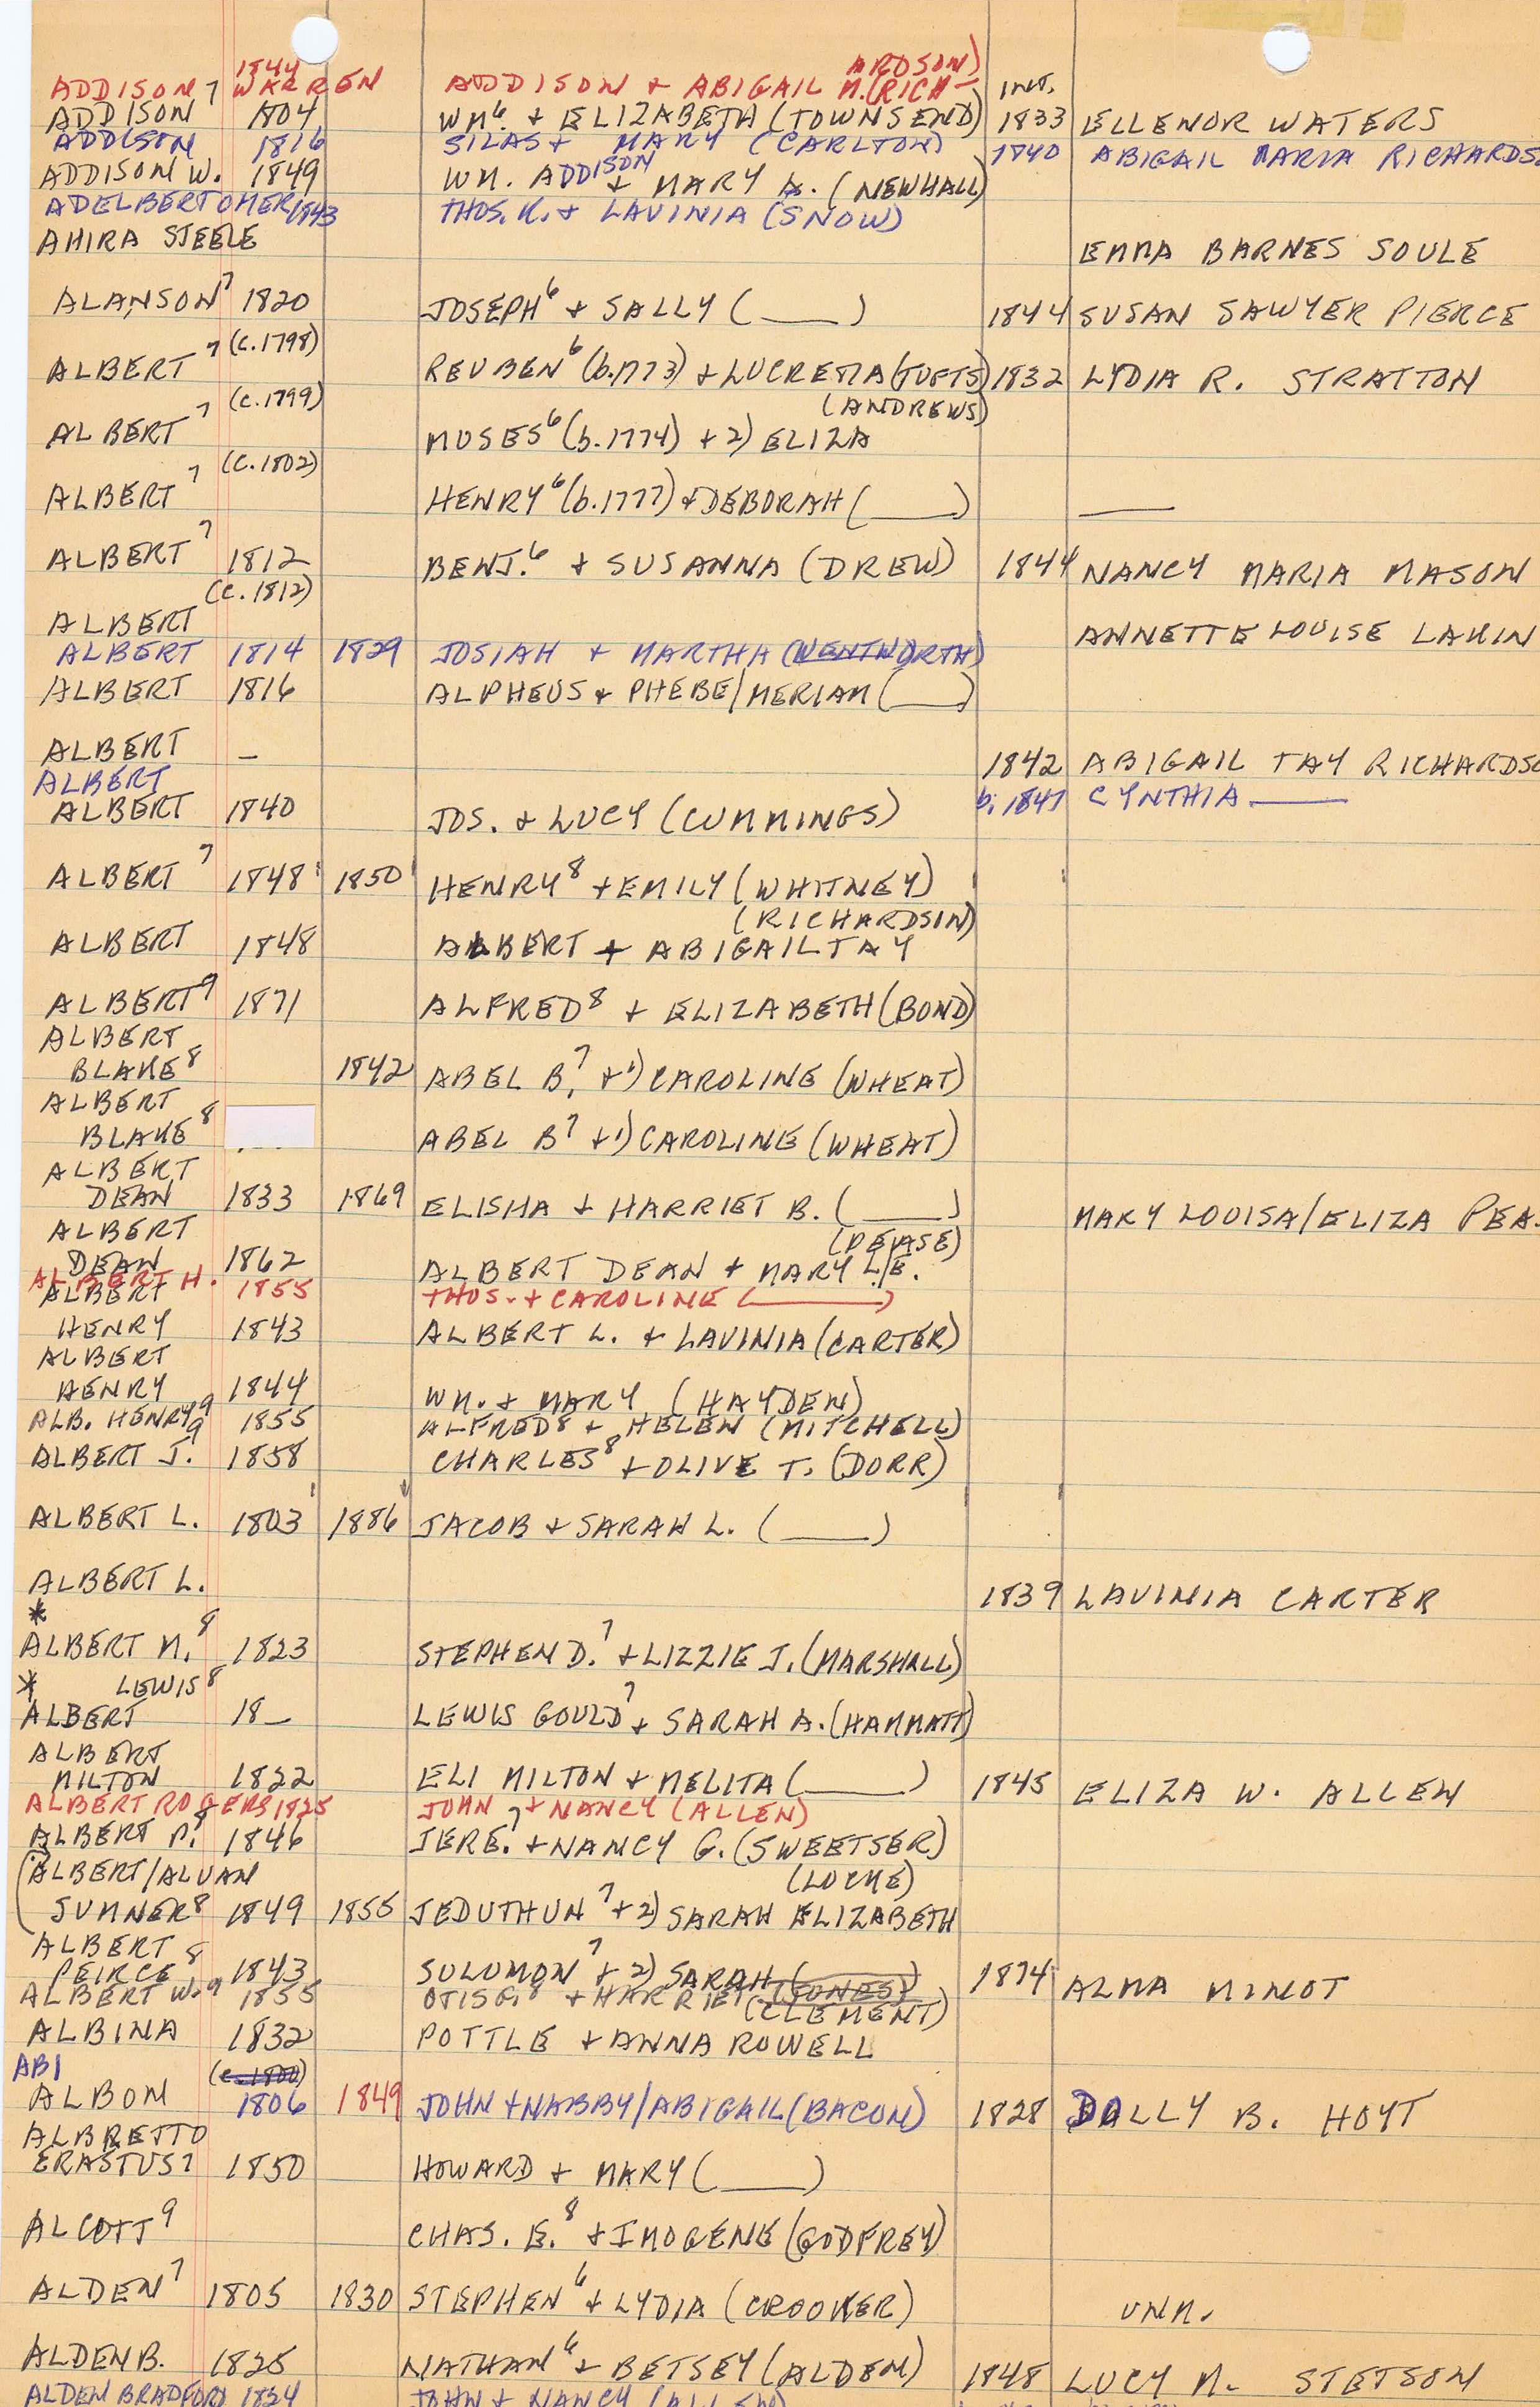 ADDISON 7 1844 WARREN ADDISON + ABIGAIL M. (RICHARDSON) INT.
ADDISON 7 1804 WM.6 + ELIZABETH (TOWNSEND) 1833 ELLENOR WATERS
ADDISON 1816 SILAS + MARY (CARLTON) 1840 ABIGAIL MARIA RICHARDS
ADDISON W. 1849 WM. ADDISON + MARY A. (NEWHALL)
ADELBERT OMER 1843 THOS. K. + LAVINIA (SNOW)
AHIRA STEELE EMMA BARNES SOULE
ALANSON 7 1820 JOSEPH 6 + SALLY (___) 1844 SUSAN SAWYER PIERCE
ALBERT 7 (c.1798) REUBEN 6 (b.1773) + LUCRETIA (TUFTS) 1832 LYDIA R. STRATTON
ALBERT 7 (c.1799) MOSES 6 (b.1774) + 2) ELIZA (ANDREWS)
ALBERT 7 (c.1802) HENRY 6 (b.1777) + DEBORAH (___) ___
ALBERT 7 1812 BENJ.6 + SUSANNA (DREW) 1844 NANCY MARIA MASON
ALBERT (c.1812) ANNETTE LOUISE LAKIN
ALBERT 1814 1829 JOSIAH + MARTHA (WENTWORTH)
ALBERT 1816 ALPHEUS + PHEBE/MERIAM (___)
ALBERT — 1842 ABIGAIL TAY RICHARDSO
ALBERT b; 1847 CYNTHIA ___
ALBERT 1840 JOS. + LUCY (CUMMINGS)
ALBERT 7 1848 1850 HENRY 8 + EMILY (WHITNEY)
ALBERT 1848 ALBERT + ABIGAIL TAY (RICHARDSIN)
ALBERT 9 1871 ALFRED 8 + ELIZABETH (BOND)
ALBERT
BLAKE 8 1842 ABEL B.7 + 1) CAROLINE (WHEAT)
ALBERT
BLAKE 8 ABEL B 7 + 1) CAROLINE (WHEAT)
ALBERT
DEAN 1833 1869 ELISHA + HARRIET B. (___) MARY LOUISA/ELIZA PEA
ALBERT
DEAN 1862 ALBERT DEAN + MARY L./E. (PEASE)
ALBERT H. 1855 THOS. + CAROLINE (___)
ALBERT
HENRY 1843 ALBERT L. + LAVINIA (CARTER)
ALBERT
HENRY 1844 WM. + MARY (HAYDEN)
ALB. HENRY 9 1855 ALFRED 8 + HELEN (MITCHELL)
ALBERT J. 9 1858 CHARLES 8 + OLIVE T. (DORR)
ALBERT L. 1803 1886 JACOB + SARAH L. (___)
ALBERT L. 1839 LAVINIA CARTER
*
ALBERT M. 8 1823 STEPHEN D.7 + LIZZIE J. (MARSHALL)
* LEWIS 8
ALBERT 18_ LEWIS GOULD 7 + SARAH A. (HAMMATT)
ALBERT
MILTON 1822 ELI MILTON + MELITA (___) 1845 ELIZA W. ALLEN
ALBERT ROGERS 1825 JOHN + NANCY (ALLEN)
ALBERT P. 8 1846 JERE.7 + NANCY G. (SWEETSER)
ALBERT/ALVAN
SUMNER 8 1849 1855 JEDUTHUN 7 + 2) SARAH ELIZABETH (LOCKE)
ALBERT
PEIRCE 8 1843 SOLOMON 7 + 2) SARAH (___) 1874 ALMA MINOT
ALBERT W. 9 1855 OTIS G. 8 + HARRIET (JONES) (CLEMENT)
ALBINA 1832 POTTLE + ANNA ROWELL
ABI (c.1800)
ALBOM 1806 1849 JOHN + NABBY/ABIGAIL (BACON) 1828 DOLLY B. HOYT
ALBRETTO
ERASTUS? 1850 HOWARD + MARY (___)
ALCOTT 9 CHAS. E. 8 + IMOGENE (GODFREY)
ALDEN 7 1805 1830 STEPHEN 6 + LYDIA (CROOKER) UNM.
ALDEN B. 1825 NATHAN 6 + BETSEY (ALDEN) 1848 LUCY M. STETSON
ALDEN BRADFORD 1824 JOHN + NANCY (ALLEN)